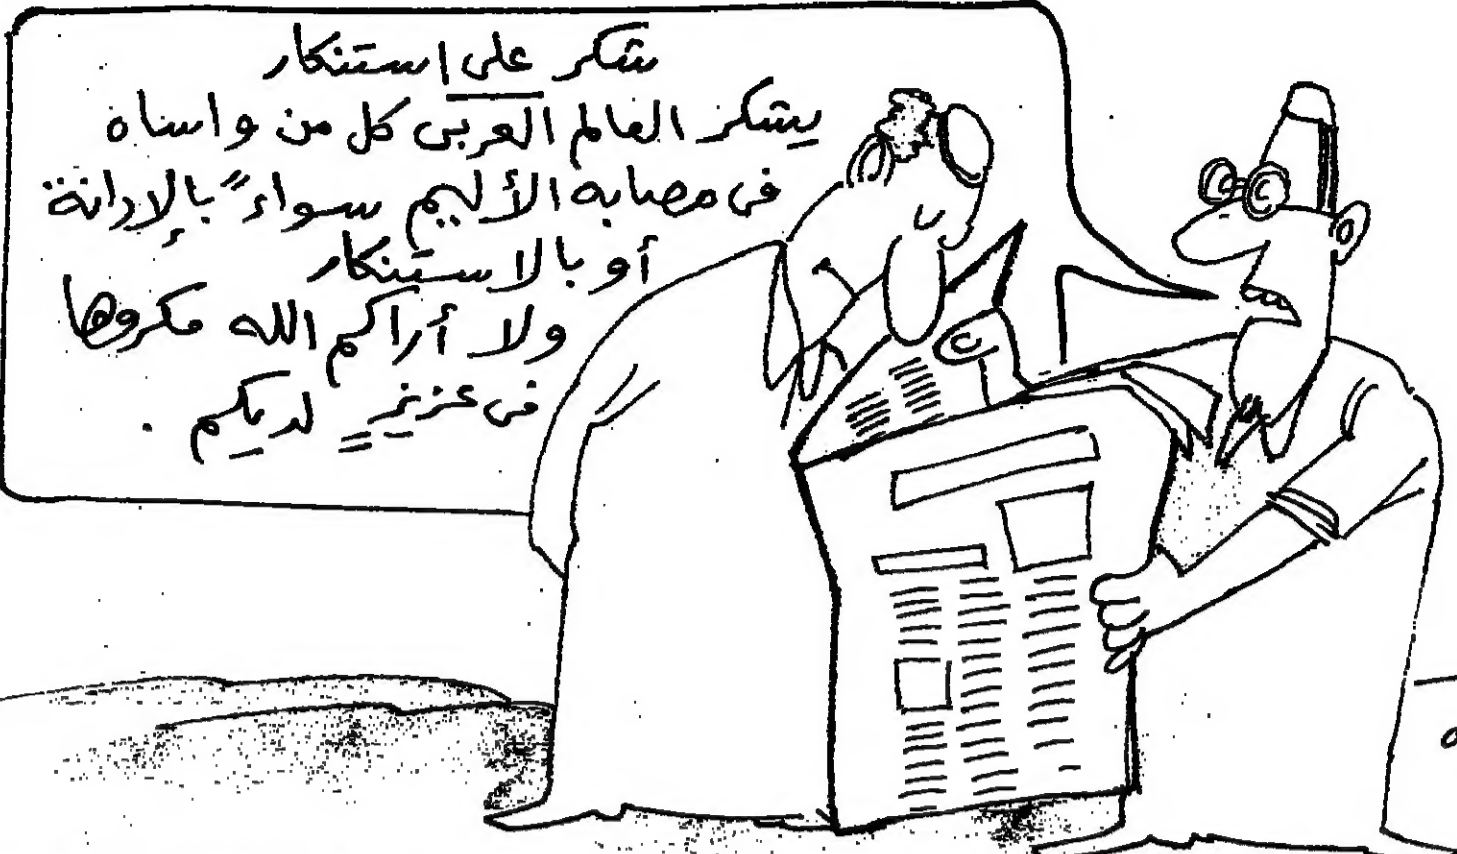 شكر على استنكار
يشكر العالم العربى كل من واساه
فى مصابه الأليم سواءً بالإدانة
أو بالاستنكار
ولا أراكم الله مكروها
فى عزيزٍ لديكم .